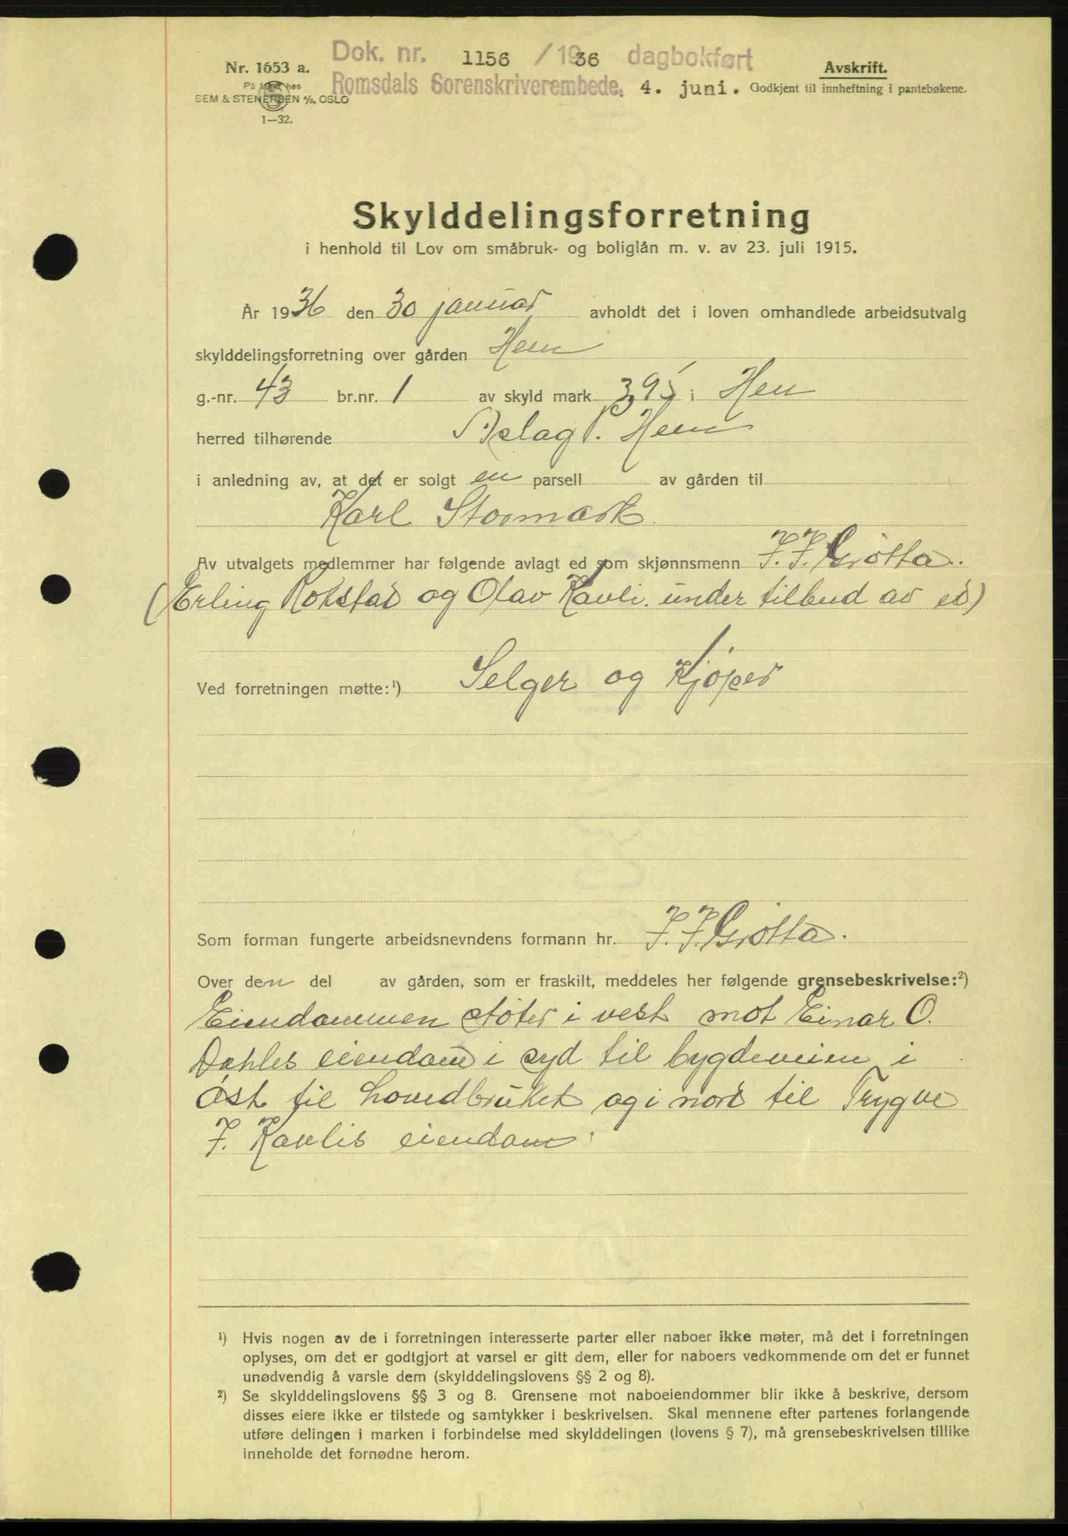 Dok. nr. 1156 / 1936 dagbokført
Romsdals Sorenskriverembede, 4. juni.
Nr. 1653 a.
På lager hos
SEM & STENERSEN A/S, OSLO
1—32.
Avskrift.
Godkjent til innheftning i pantebøkene.
Skylddelingsforretning
i henhold til Lov om småbruk- og boliglån m. v. av 23. juli 1915.
År 1936 den 30 januar avholdt det i loven omhandlede arbeidsutvalg
skylddelingsforretning over gården Hen
g.-nr. 43 br.nr. 1 av skyld mark 3,95 i Hen
herred tilhørende Aslag P. Hen
i anledning av, at det er solgt en parsell av gården til
Karl Stormark
Av utvalgets medlemmer har følgende avlagt ed som skjønnsmenn J. J. Grøtta.
(Erling Rokstad og Olav Kavli. under tilbud av ed)
Ved forretningen møtte:¹) Selger og Kjøper
Som forman fungerte arbeidsnevndens formann hr. J. J. Grøtta.
Over den del av gården, som er fraskilt, meddeles her følgende grensebeskrivelse:²)
Eiendommen støter i vest mot Einar O.
Dahles eiendom i syd til bygdeveien, i
øst til hovedbruket og i nord til Trygve
J. Kavlis eiendom.
¹) Hvis nogen av de i forretningen interesserte parter eller naboer ikke møter, må det i forretningen
oplyses, om det er godtgjort at varsel er gitt dem, eller for naboers vedkommende om det er funnet
unødvendig å varsle dem (skylddelingslovens §§ 2 og 8).
²) Se skylddelingslovens §§ 3 og 8. Grensene mot naboeiendommer blir ikke å beskrive, dersom
disses eiere ikke er tilstede og samtykker i beskrivelsen. Skal mennene efter partenes forlangende
utføre delingen i marken i forbindelse med skylddelingen (lovens § 7), må grensebeskrivelsen tillike
inneholde det fornødne herom.